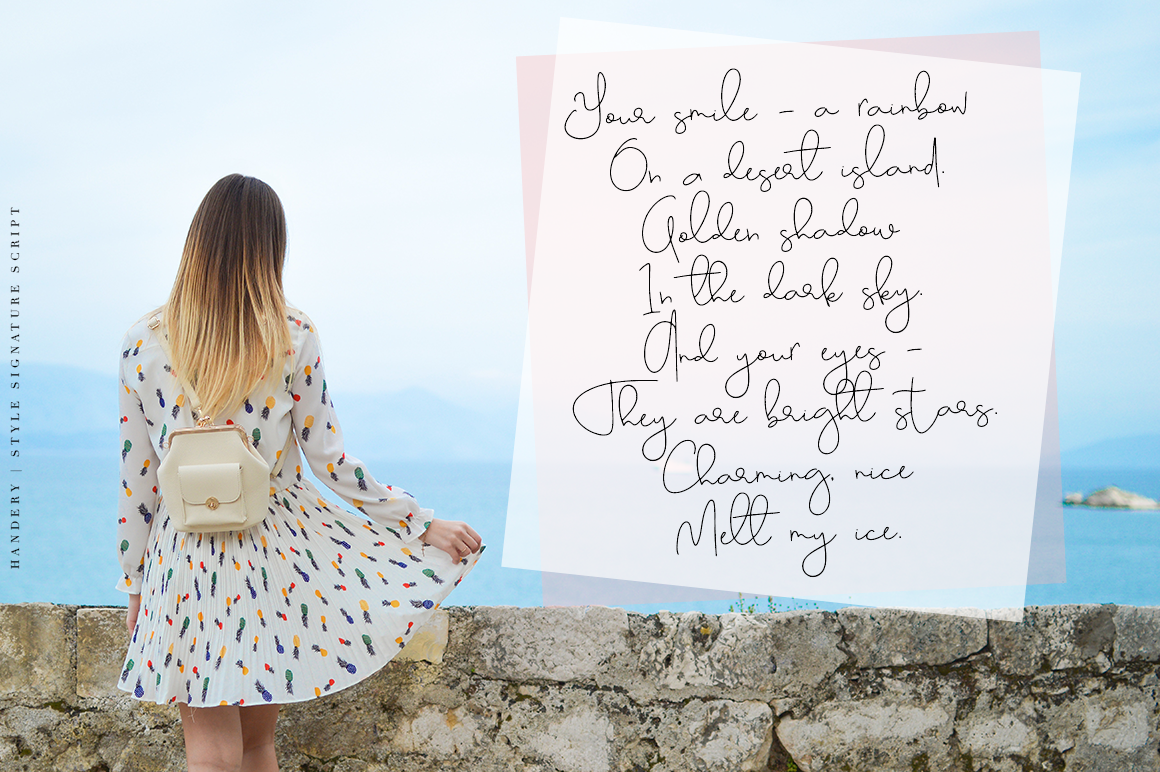 Your smile - a rainbow
On a desert island.
Golden shadow
In the dark sky.
And your eyes -
They are bright stars.
Charming, nice
Melt my ice.
HANDERY | STYLE SIGNATURE SCRIPT